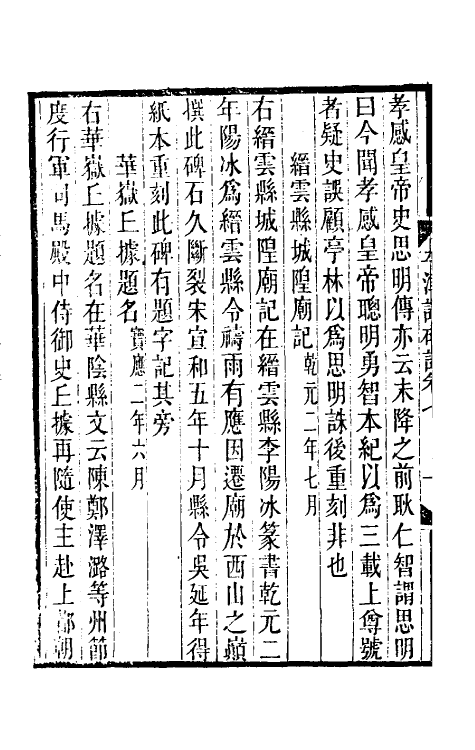 孝感皇帝史思明傳亦云未降之前耿仁智謂思明
曰今聞孝感皇帝聰明勇智本紀以爲三載上尊號
者疑史誤顧亭林以爲思明誅後重刻非也
縉雲縣城隍廟記乾元二年七月
右縉雲縣城隍廟記在縉雲縣李陽冰篆書乾元二
年陽冰爲縉雲縣令禱雨有應因遷廟於西山之巔
撰此碑石久斷裂宋宣和五年十月縣令吳延年得
紙本重刻此碑有題字記其旁
華嶽丘據題名寶應二年六月
右華嶽丘據題名在華陰縣文云陳鄭澤潞等州節
度行軍司馬殿中侍御史丘據再隨使主赴上都朝
平津讀碑記卷七